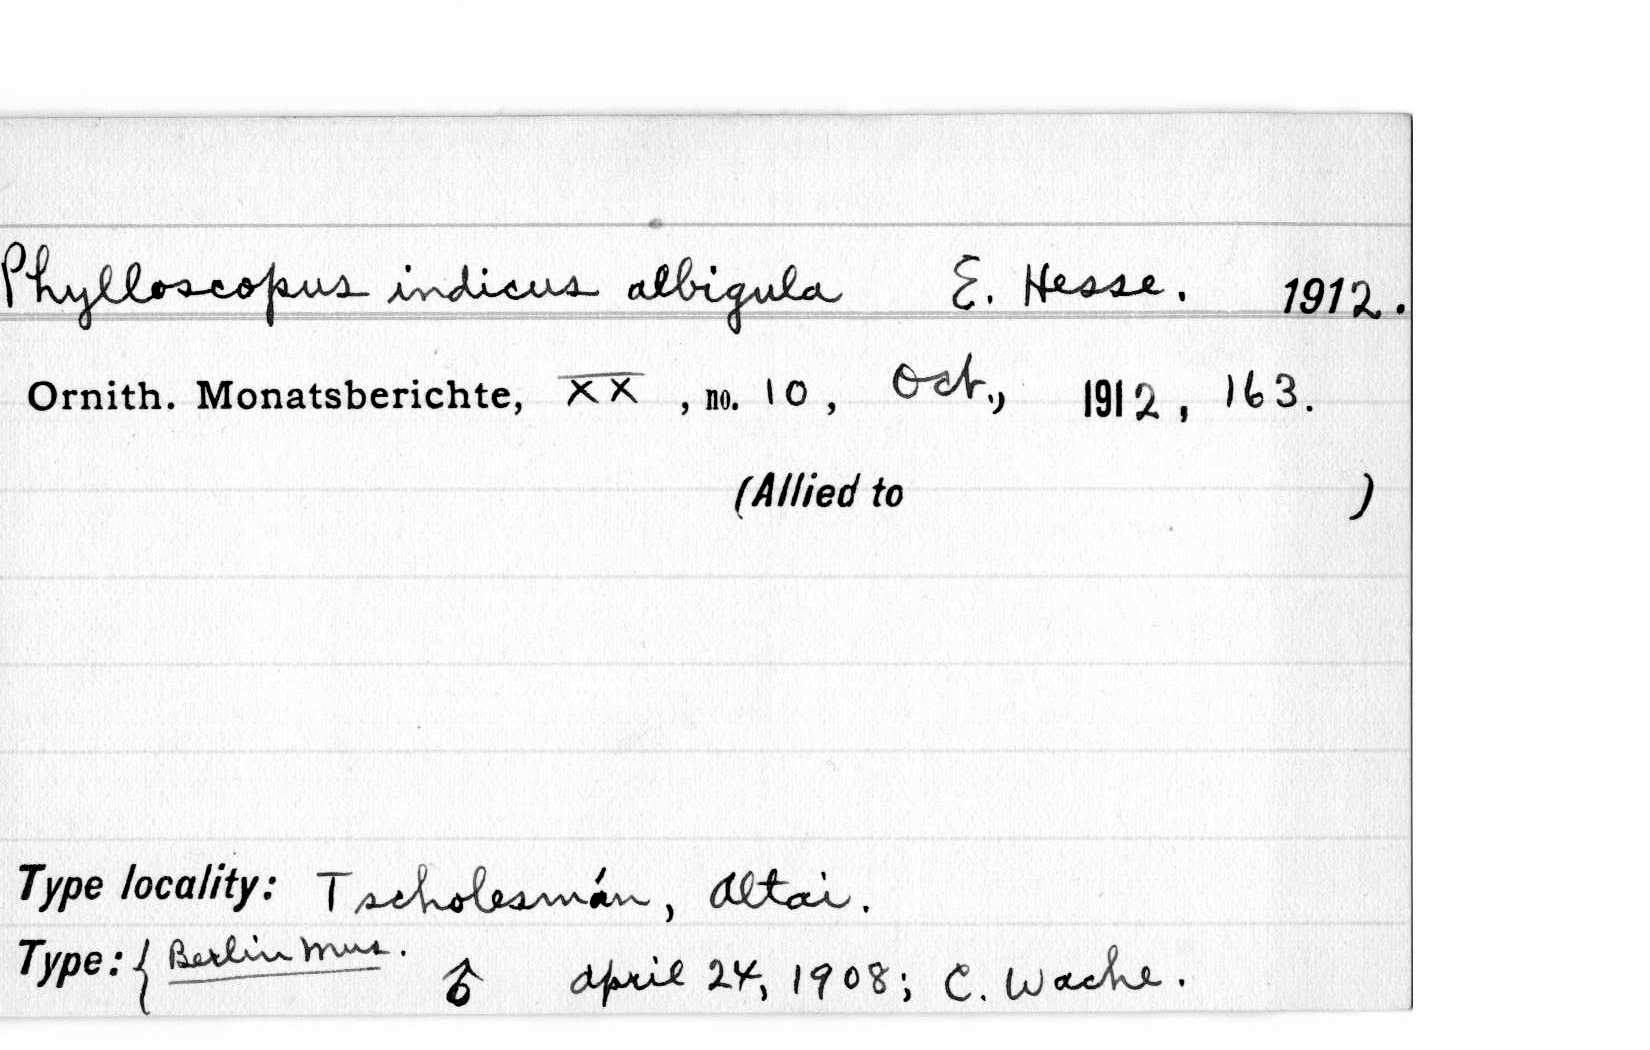 Phylloscopus indicus albigula E. Hesse. 1912.
Ornith. Monatsberichte, XX, no. 10, Oct., 1912, 163.
(Allied to )
Type locality: Tscholesmán, Altai.
Type: { Berlin Mus. ♂ April 24, 1908; C. Wache.